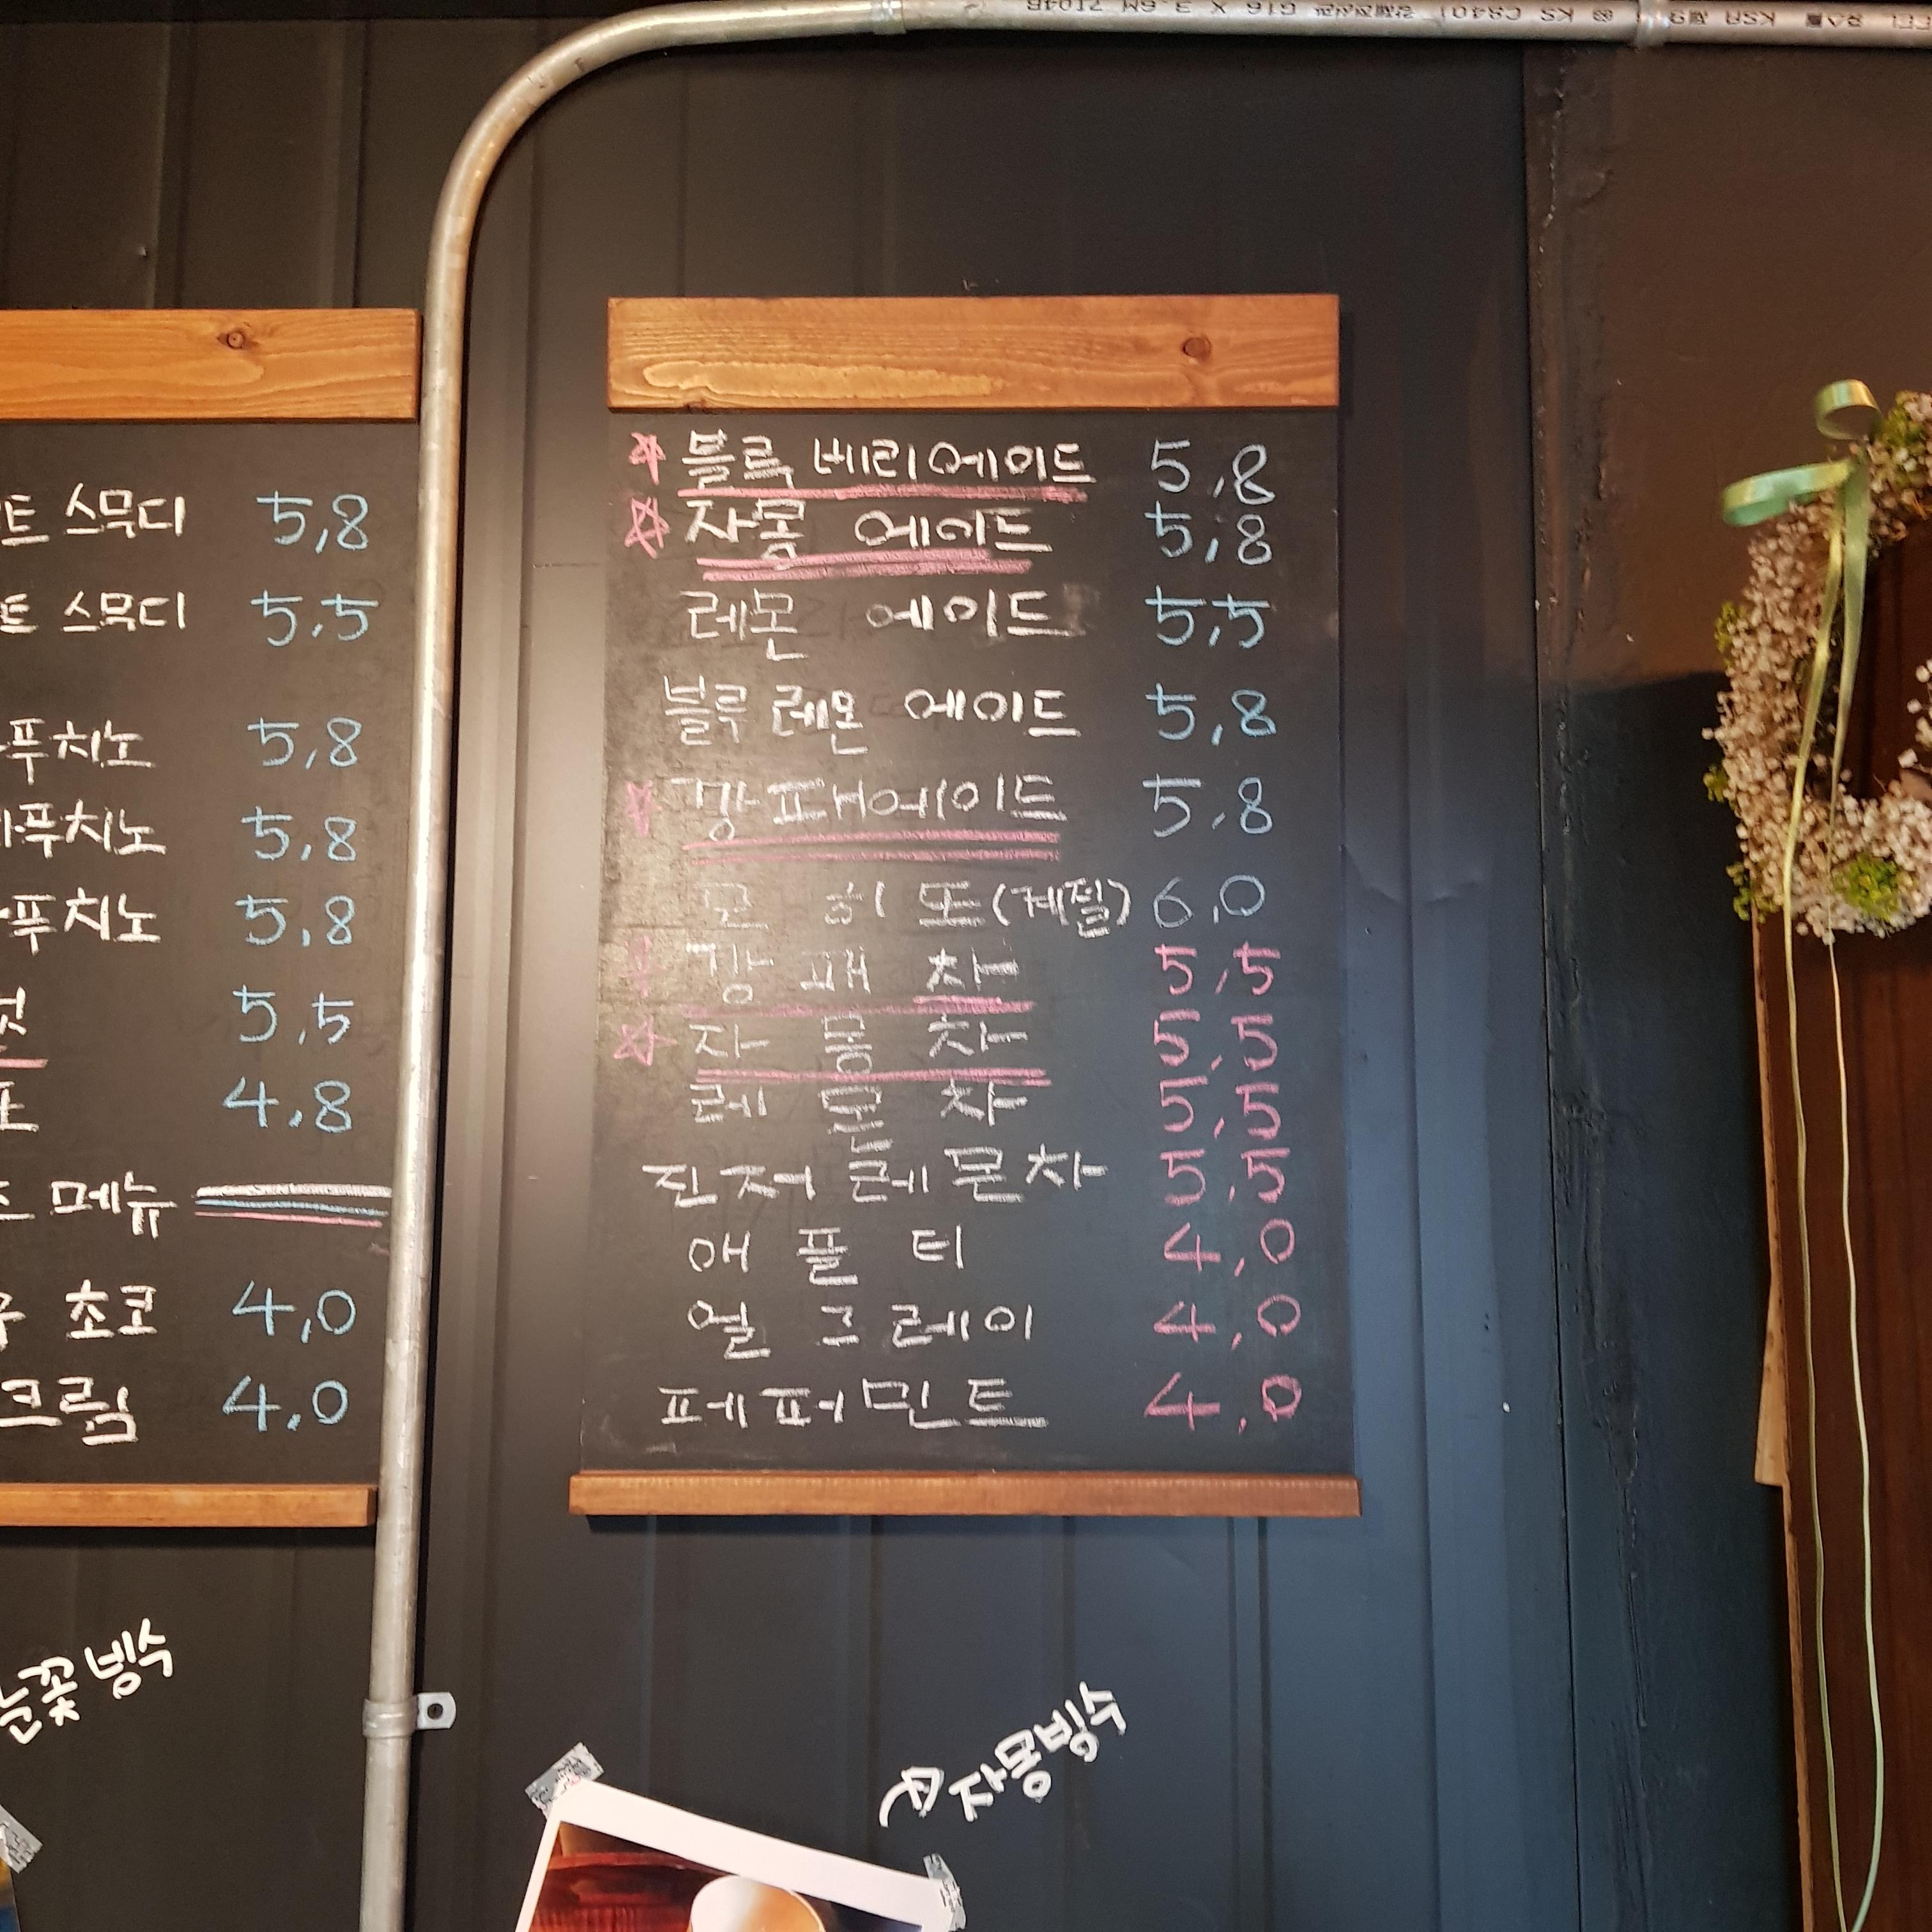 트 스무디 5,8
트 스무디 5,5
푸치노 5,8
푸치노 5,8
푸치노 5,8
5,5
4,8
메뉴
초코 4,0
크림 4,0
블루베리에이드 5,8
자몽 에이드 5,8
레몬 에이드 5,5
블루레몬 에이드 5,8
깡패에이드 5,8
모히또(계절) 6,0
깡패차 5,5
자몽차 5,5
레몬차 5,5
진저레몬차 5,5
애플티 4,0
얼그레이 4,0
페퍼민트 4,0
눈꽃빙수
자몽빙수